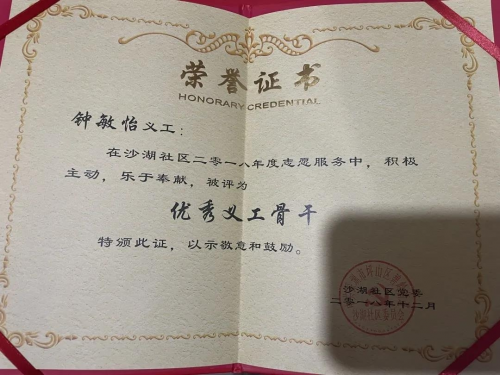 荣誉证书
HONORARY CREDENTIAL
钟敏怡义工：
在沙湖社区二零一八年度志愿服务中，积极
主动，乐于奉献，被评为
优秀义工骨干
特颁此证，以示敬意和鼓励。
沙湖社区党委
二零一八年十二月